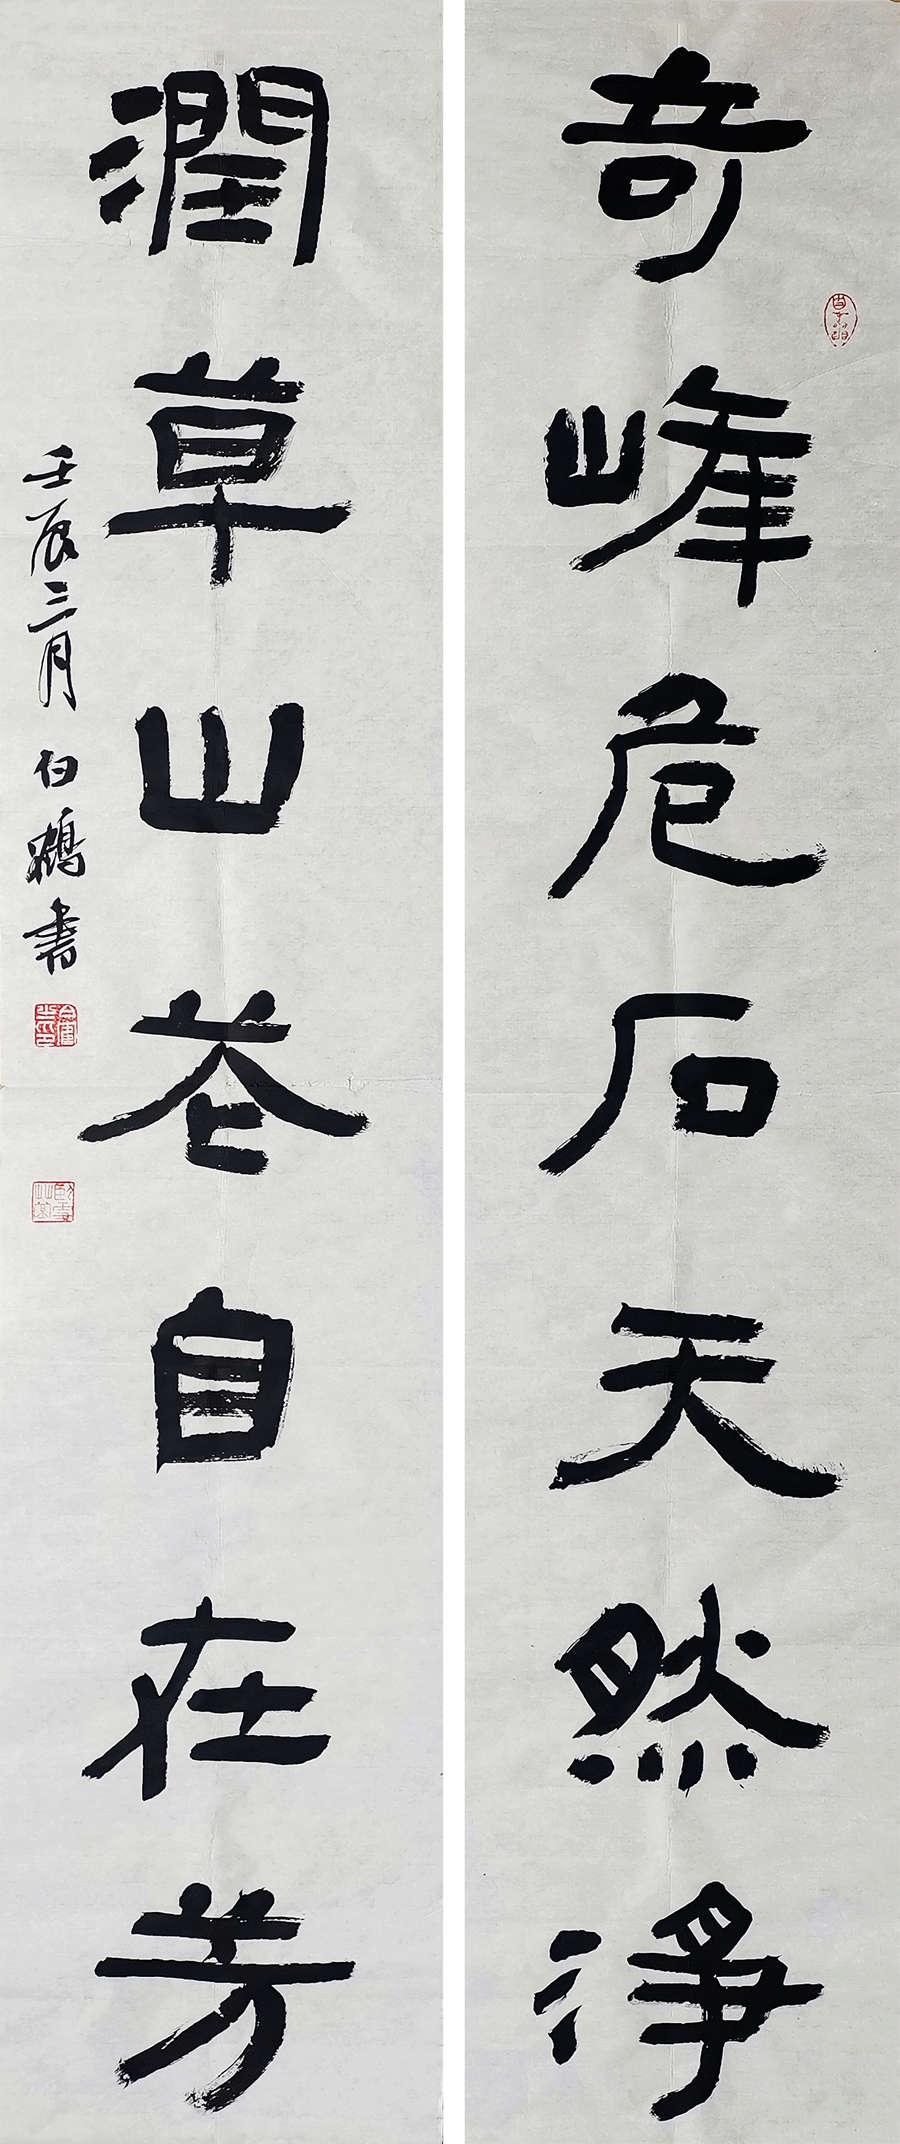 奇峰危石天然淨
潤草山花自在芳
壬辰三月 白鶴書